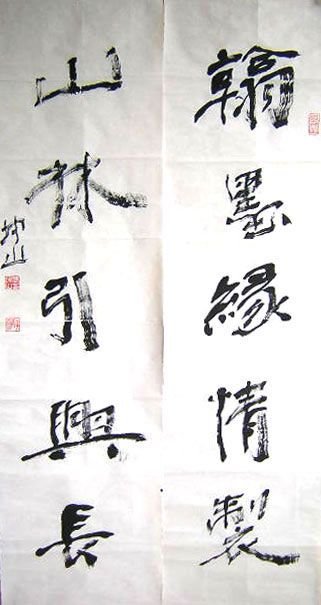 翰墨緣情製
山林引興長